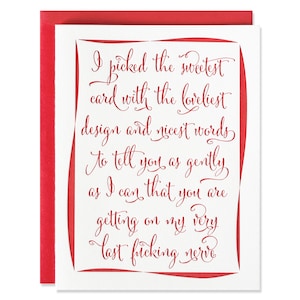 I picked the sweetest
card with the loveliest
design and nicest words
to tell you as gently
as I can that you are
getting on my very
last fucking nerve